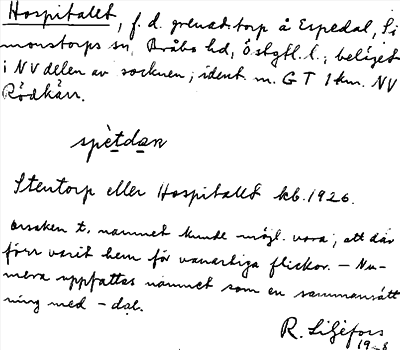 Hospitalet, f. d. grenad.torp å Espedal, Si
monstorps sn, Bråbo hd, Östgtl. l.; beläget
i NV delen av socknen; ident. m. GT 1 km. NV
Rödkärr.
spètdan
Stentorp eller Hospitalet kb. 1926.
Orsaken t. namnet kunde möjl. vara, att där
förr varit hem för vanartiga flickor. – Nu-
mera uppfattas namnet som en sammansätt
ning med – dal.
R. Liljefors